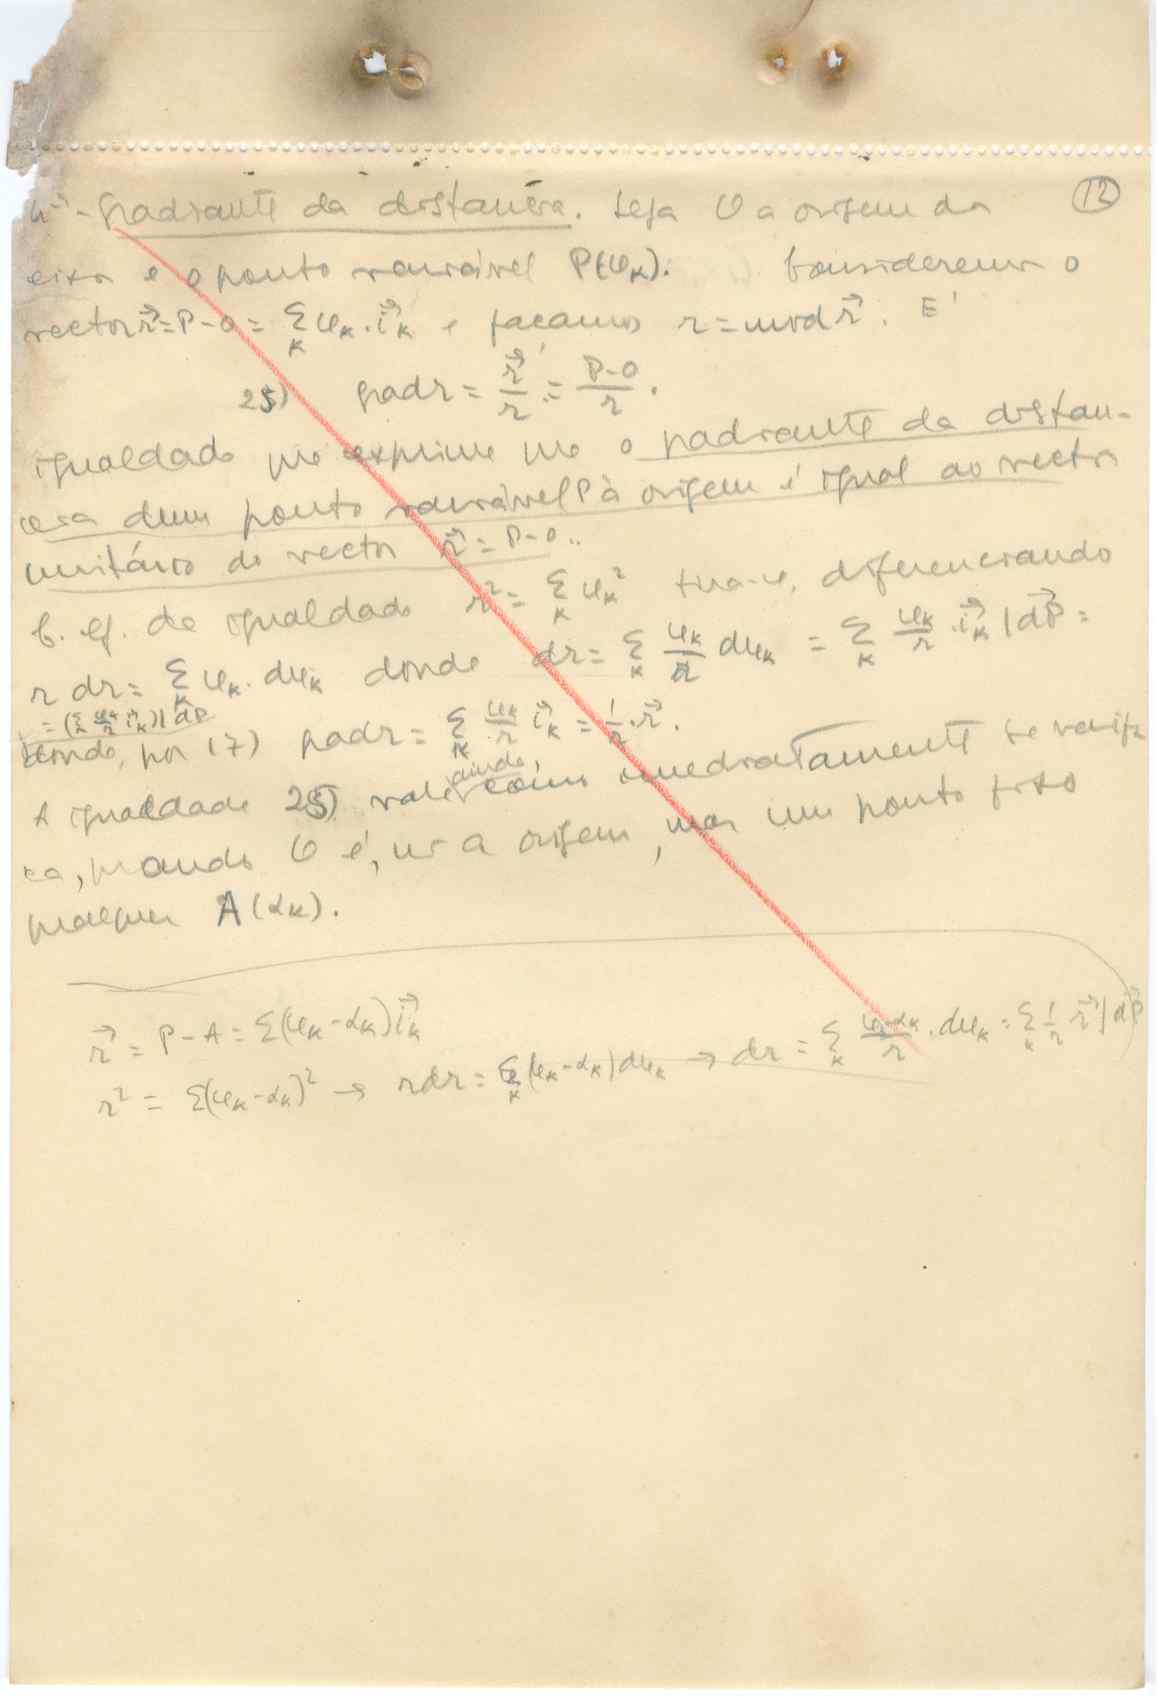 4º - Gradiante da distância. Seja O a origem dos (12)
eixos e o ponto variável P(u_k). Consideremos o
vector r⃗ = P-O = Σ_k u_k · i⃗_k e façamos r = mod r⃗. É
25) grad r = r⃗/r = (P-O)/r.
igualdade que exprime que o gradiante da distân-
cia dum ponto variável P à origem é igual ao vector
unitário do vector r⃗ = P-O.
C. ef. da igualdade r² = Σ_k u_k² tira-se, diferenciando
r dr = Σ_k u_k · du_k donde dr = Σ_k u_k/r du_k = Σ_k u_k/r · i⃗_k | dP⃗ =
= (Σ_k u_k/r i⃗_k) | dP⃗
donde, por 17) grad r = Σ_k u_k/r i⃗_k = 1/r · r⃗.
A igualdade 25) vale ainda, como imediatamente se verifi-
ca, quando O é, não a origem, mas um ponto fixo
qualquer A(α_k).
r⃗ = P-A = Σ(u_k-α_k) i⃗_k
r² = Σ(u_k-α_k)² → r dr = Σ_k (u_k-α_k) du_k → dr = Σ_k (u_k-α_k)/r · du_k = Σ_k 1/r r⃗ | dP⃗